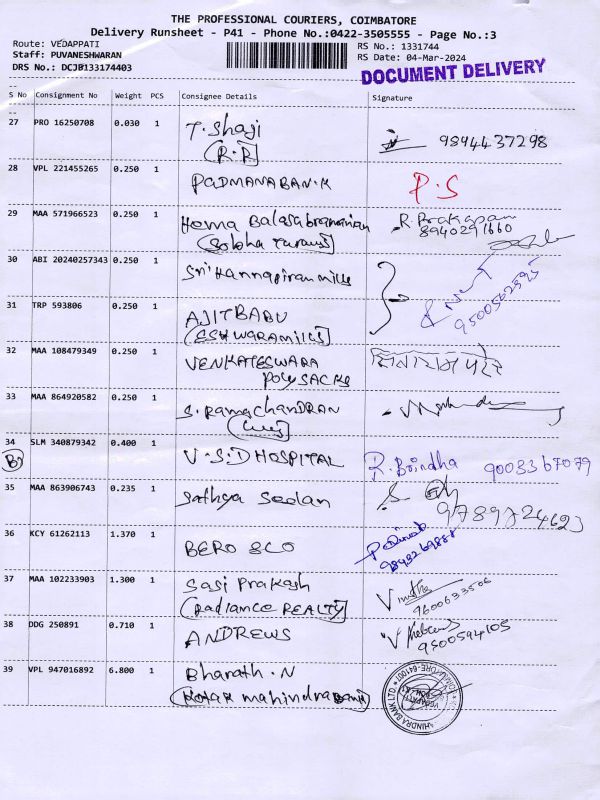 THE PROFESSIONAL COURIERS, COIMBATORE
Delivery Runsheet - P41 - Phone No.:0422-3505555 - Page No.:3
Route: VEDAPPATI
Staff: PUVANESHWARAN
DRS No.: DCJB133174403
RS No.: 1331744
RS Date: 04-Mar-2024
DOCUMENT DELIVERY
S No Consignment No Weight PCS Consignee Details Signature
27 PRO 16250708 0.030 1 T. Shaji 9894437298
(R.R)
28 VPL 221455265 0.250 1 PADMANABAN.K P.S
29 MAA 571966523 0.250 1 Hema Balasabramanian R. Prakasam
(Sobha Tarams) 8940291660
30 ABI 20240257343 0.250 1 Sri Kannapiran mills
31 TRP 593806 0.250 1 AJITBABU 9500562595
(ESHWARAMILLS)
32 MAA 108479349 0.250 1 VENKATESWARA
POLYSACKS
33 MAA 864920582 0.250 1 S. RAMACHANDRAN
34 SLM 340879342 0.400 1 V.S.D HOSPITAL R. Brindha 9003367079
35 MAA 863906743 0.235 1 Sathya Seelan S. 9789824623
36 KCY 61262113 1.370 1 BERO & CO 9843269888
37 MAA 102233903 1.300 1 Sasi Prakash
(Radiance REALTY) 9600633506
38 DDG 250891 0.710 1 ANDREWS 9500594105
39 VPL 947016892 6.800 1 Bharath.N
(Kotak mahindra Bank)